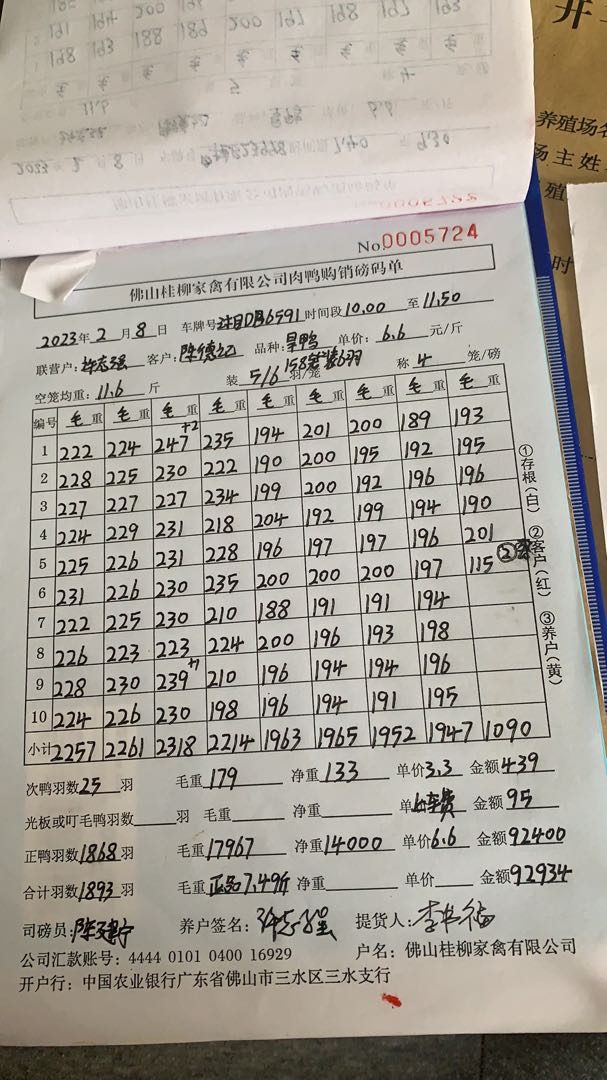 No.0005724
佛山桂柳家禽有限公司肉鸭购销磅码单
2023年2月8日 车牌号 6591 时间段10.00至11.50
联营户:许志强 客户:陈德记 品种:旱鸭 单价:6.6元/斤
空笼均重:11.6斤 装5/6羽/笼 称4笼/磅
编号 毛重 毛重 毛重 毛重 毛重 毛重 毛重 毛重 毛重
1 222 224 247+2 235 194 201 200 189 193
2 228 225 230 222 190 200 195 192 195
3 227 227 227 234 199 200 192 196 196
4 224 229 231 218 204 192 199 194 190
5 225 226 231 228 196 197 197 196 201
6 231 226 230 235 200 200 200 197 115
7 222 225 230 210 188 191 191 194
8 226 223 223 224 200 196 193 198
9 228 230 239+1 210 196 194 194 196
10 224 226 230 198 196 194 191 195
小计 2257 2261 2318 2214 1963 1965 1952 1947 1090
次鸭羽数25羽 毛重179 净重133 单价3.3 金额439
光板或叮毛鸭羽数 羽 毛重 净重 单 金额95
正鸭羽数1868羽 毛重17967 净重14000 单价6.6 金额92400
合计羽数1893羽 毛重正品7.49斤 净重 单价 金额92934
司磅员: 养户签名: 提货人:
公司汇款账号:4444 0101 0400 16929 户名:佛山桂柳家禽有限公司
开户行:中国农业银行广东省佛山市三水区三水支行
①存根(白) ②客户(红) ③养户(黄)
开
养殖场名
场主姓
养殖
时